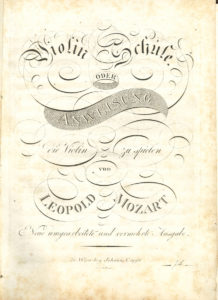 Violin Schule,
ODER
ANWEISUNG
die Violin zu spielen
VON
LEOPOLD MOZART
Neue umgearbeitete und vermehrte Ausgabe.
In Wien bey Johann Cappi